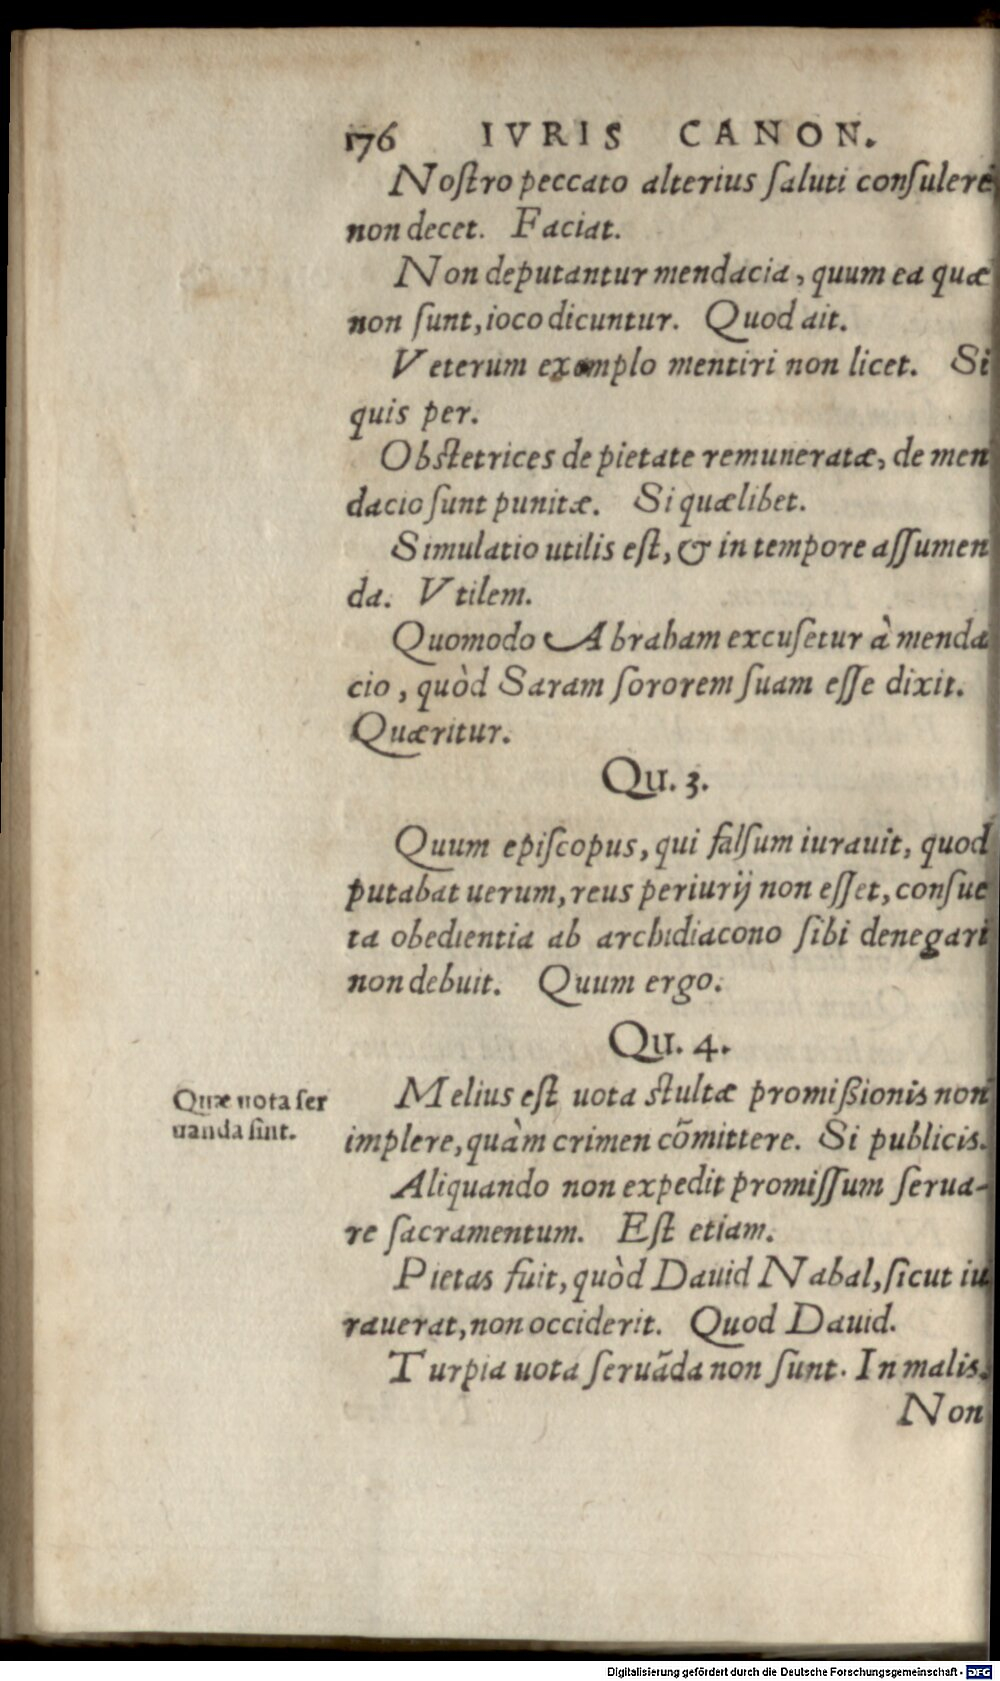 176 IVRIS CANON.
Noſtro peccato alterius ſaluti conſulere
non decet. Faciat.
Non deputantur mendacia, quum ea quæ
non ſunt, ioco dicuntur. Quod ait.
Veterum exemplo mentiri non licet. Si
quis per.
Obſtetrices de pietate remuneratæ, de men
dacio ſunt punitæ. Si quælibet.
Simulatio utilis eſt, & in tempore aſſumen
da. Vtilem.
Quomodo Abraham excuſetur à menda
cio, quòd Saram ſororem ſuam eſſe dixit.
Quæritur.
Qu. 3.
Quum epiſcopus, qui falſum iurauit, quod
putabat uerum, reus periurij non eſſet, conſue
ta obedientia ab archidiacono ſibi denegari
non debuit. Quum ergo.
Qu. 4.
Quæ uota ſer
uanda ſint.
Melius eſt uota ſtultæ promißionis non
implere, quàm crimen cõmittere. Si publicis.
Aliquando non expedit promiſſum ſerua-
re ſacramentum. Eſt etiam.
Pietas fuit, quòd Dauid Nabal, ſicut iu
rauerat, non occiderit. Quod Dauid.
Turpia uota ſeruãda non ſunt. In malis.
Non
Digitalisierung gefördert durch die Deutsche Forschungsgemeinschaft - DFG